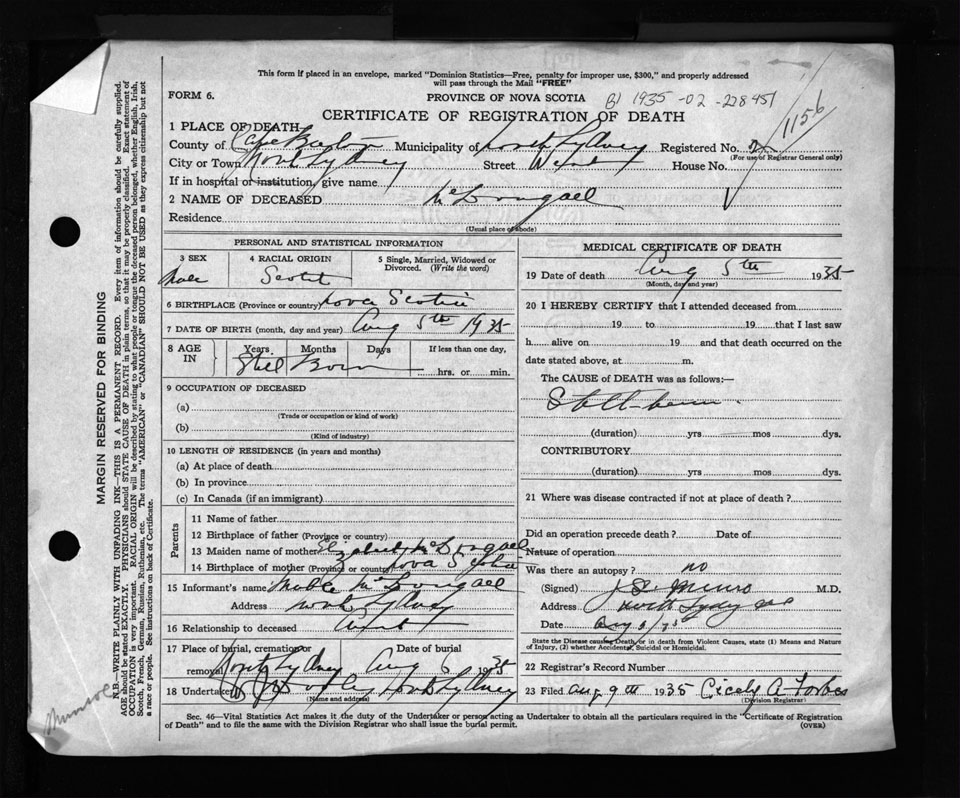 This form if placed in an envelope, marked "Dominion Statistics—Free, penalty for improper use, $300," and properly addressed
will pass through the Mail "FREE"
FORM 6.
PROVINCE OF NOVA SCOTIA
1935-02-228451
CERTIFICATE OF REGISTRATION OF DEATH
1156
1 PLACE OF DEATH—
County of Cape Breton Municipality of North Sydney Registered No.
(For use of Registrar General only)
City or Town North Sydney Street House No.
If in hospital or institution, give name
2 NAME OF DECEASED McDougall
Residence
(Usual place of abode)
PERSONAL AND STATISTICAL INFORMATION
3 SEX 4 RACIAL ORIGIN 5 Single, Married, Widowed or
Divorced. (Write the word)
Male Scotch
6 BIRTHPLACE (Province or country) Nova Scotia
7 DATE OF BIRTH (month, day and year) Aug 5th 1935
8 AGE IN Years Months Days If less than one day,
Still Born hrs. or min.
9 OCCUPATION OF DECEASED
(a)
(Trade or occupation or kind of work)
(b)
(Kind of industry)
10 LENGTH OF RESIDENCE (in years and months)
(a) At place of death
(b) In province
(c) In Canada (if an immigrant)
Parents
11 Name of father
12 Birthplace of father (Province or country)
13 Maiden name of mother Elizabeth McDougall
14 Birthplace of mother (Province or country) Nova Scotia
15 Informant's name McDougall
Address North Sydney
16 Relationship to deceased Aunt
17 Place of burial, cremation or Date of burial
removal North Sydney Aug 6 1935
18 Undertaker North Sydney
(Name and address)
MEDICAL CERTIFICATE OF DEATH
19 Date of death Aug 5th 1935
(Month, day and year)
20 I HEREBY CERTIFY that I attended deceased from
19 to 19 that I last saw
h alive on 19 and that death occurred on the
date stated above, at m.
The CAUSE of DEATH was as follows:—
Still-born.
(duration) yrs mos dys.
CONTRIBUTORY
(duration) yrs mos dys.
21 Where was disease contracted if not at place of death?
Did an operation precede death? Date of
Nature of operation
Was there an autopsy? no
(Signed) Munro M.D.
Address North Sydney
Date Aug
State the Disease causing Death, or in death from Violent Causes, state (1) Means and Nature
of Injury, (2) whether Accidental, Suicidal or Homicidal.
22 Registrar's Record Number
23 Filed Aug 9th 1935 Cicely A Forbes
(Division Registrar)
Sec. 46—Vital Statistics Act makes it the duty of the Undertaker or person acting as Undertaker to obtain all the particulars required in the "Certificate of Registration
of Death" and to file the same with the Division Registrar who shall issue the burial permit.
(OVER)
MARGIN RESERVED FOR BINDING
N.B.—WRITE PLAINLY WITH UNFADING INK—THIS IS A PERMANENT RECORD. Every item of information should be carefully supplied.
AGE should be stated EXACTLY. PHYSICIANS should STATE CAUSE OF DEATH in plain terms, so that it may be properly classified. Exact statement of
OCCUPATION is very important. RACIAL ORIGIN will be described by stating to what people or tongue the deceased person belonged, whether English, Irish,
Scotch, French, German, Russian, Ruthenian, etc. The terms "AMERICAN" or "CANADIAN" SHOULD NOT BE USED as they express citizenship but not
a race or people. See instructions on back of Certificate.